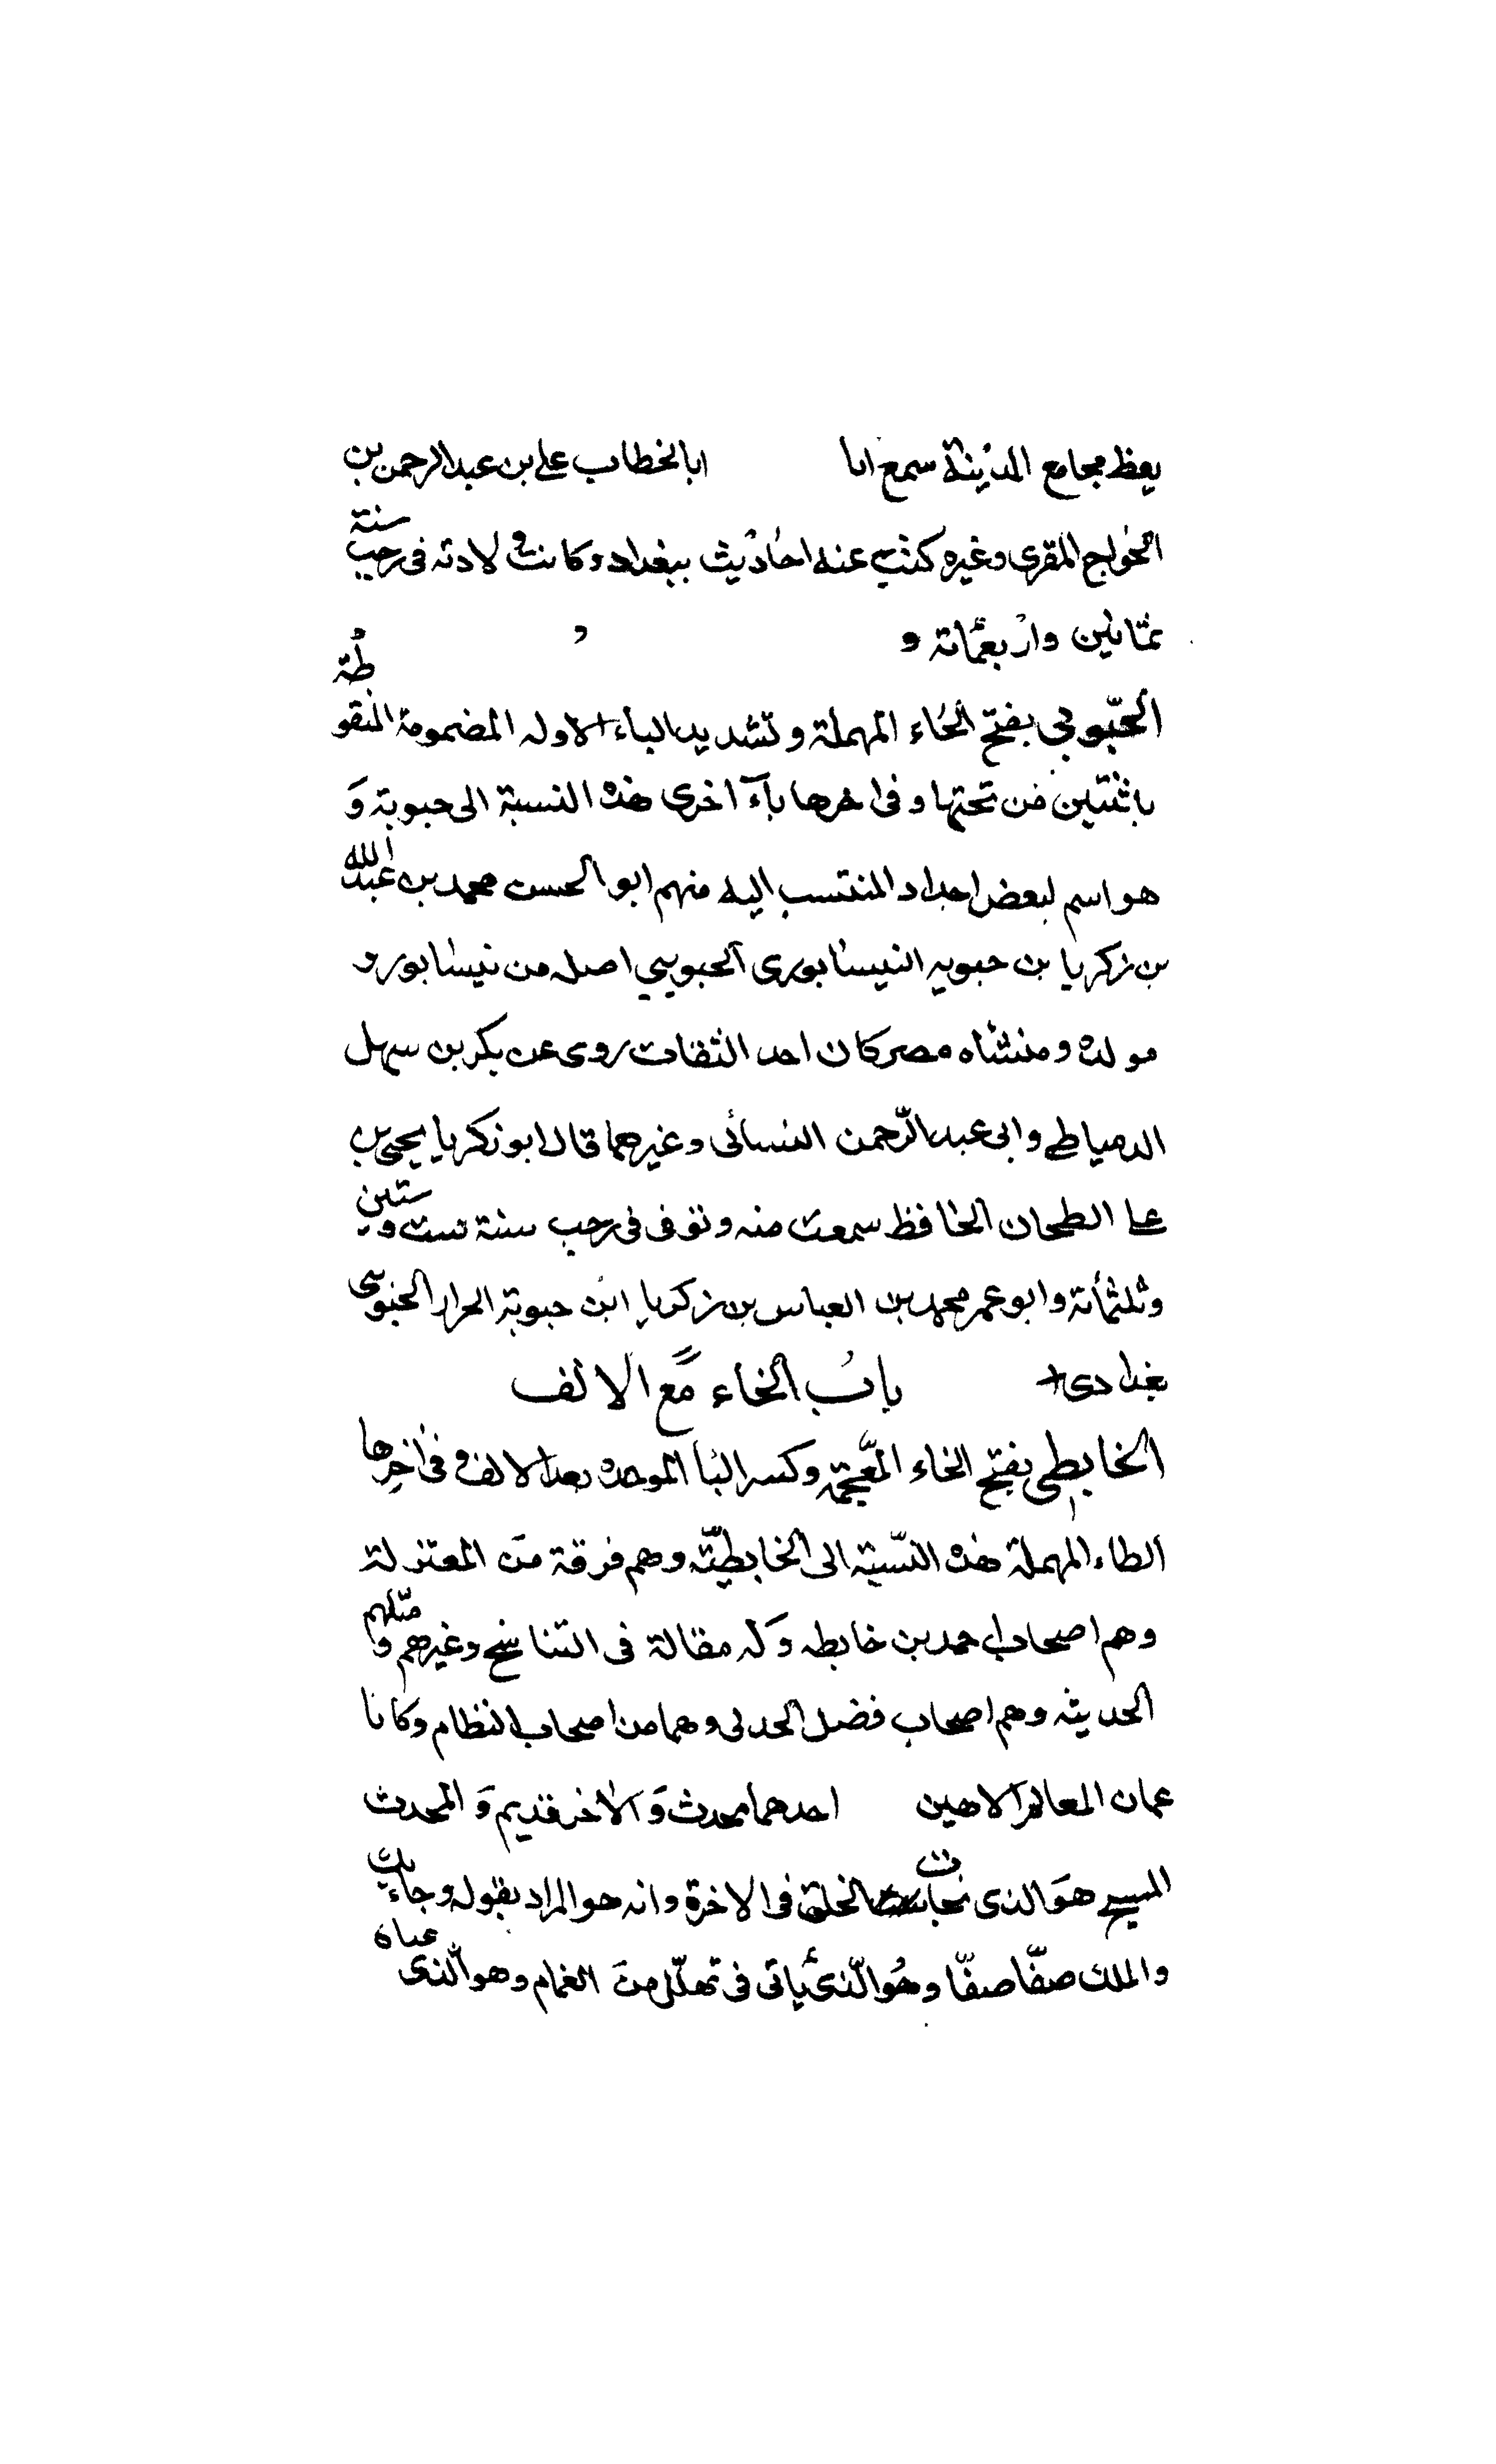 يعظ مجامع المدينة سمع ابا ابا الخطاب على بن عبد الرحمن بن
الخواج المقرى وغيره كتبت عنه احاديث ببغداد وكانت ولادته فى رجب سنة
ثمانين واربعمائة و و
الحبّوبى بفتح الحاء المهملة وتشديد الباء الاوله المضمومة المنقوطة
باثنتين من تحتها وفى اخرها باء اخرى هذه النسبة الى حبوبة وَ
هو اسم لبعض اجداد المنتسب اليه منهم ابو الحسن محمد بن عبد الله
بن زكريا بن حبويه النيسابورى الحبويبي اصله من نيسابور و
مولده ومنشاه مصر كان احد الثقات روى عن بكر بن سهل
الدمياطي وابى عبد الرّحمن النسائى وغيرهما قال ابو زكريا يحيى بن
على الطحان الحافظ سمعت منه وتوفى فى رجب سنة ست وستين
وثلثمائة وابو عمر محمد بن العباس بن زكريا ابن حبوبة الحرار الحبوبى
بغدادى باب الخاء مع الالف
الخابطى بفتح الخاء المعجمة وكسر البا الموحده بعد الالف وفى اخرها
الطاء المهملة هذه النسبة الى الخابطيّه وهم فرقة من المعتزلة
وهم اصحاب احمد بن خابطه وَله مقالة فى التناسخ وغيرهم ومثلهم
الحديثه وهم اصحاب فضل الحدثى وهما من اصحاب النظام وكانا
عمان المعالم الاهين احدهما محدث وَالاخر قديم وَ المحدث
المسيح هوَ الذى الخلق فى الاخرة وانه هو المراد بقوله وجاء ربك
والملك صفّا صفّا وهُو الّذى ياتى فى من الغمام وهو الّذى عناه